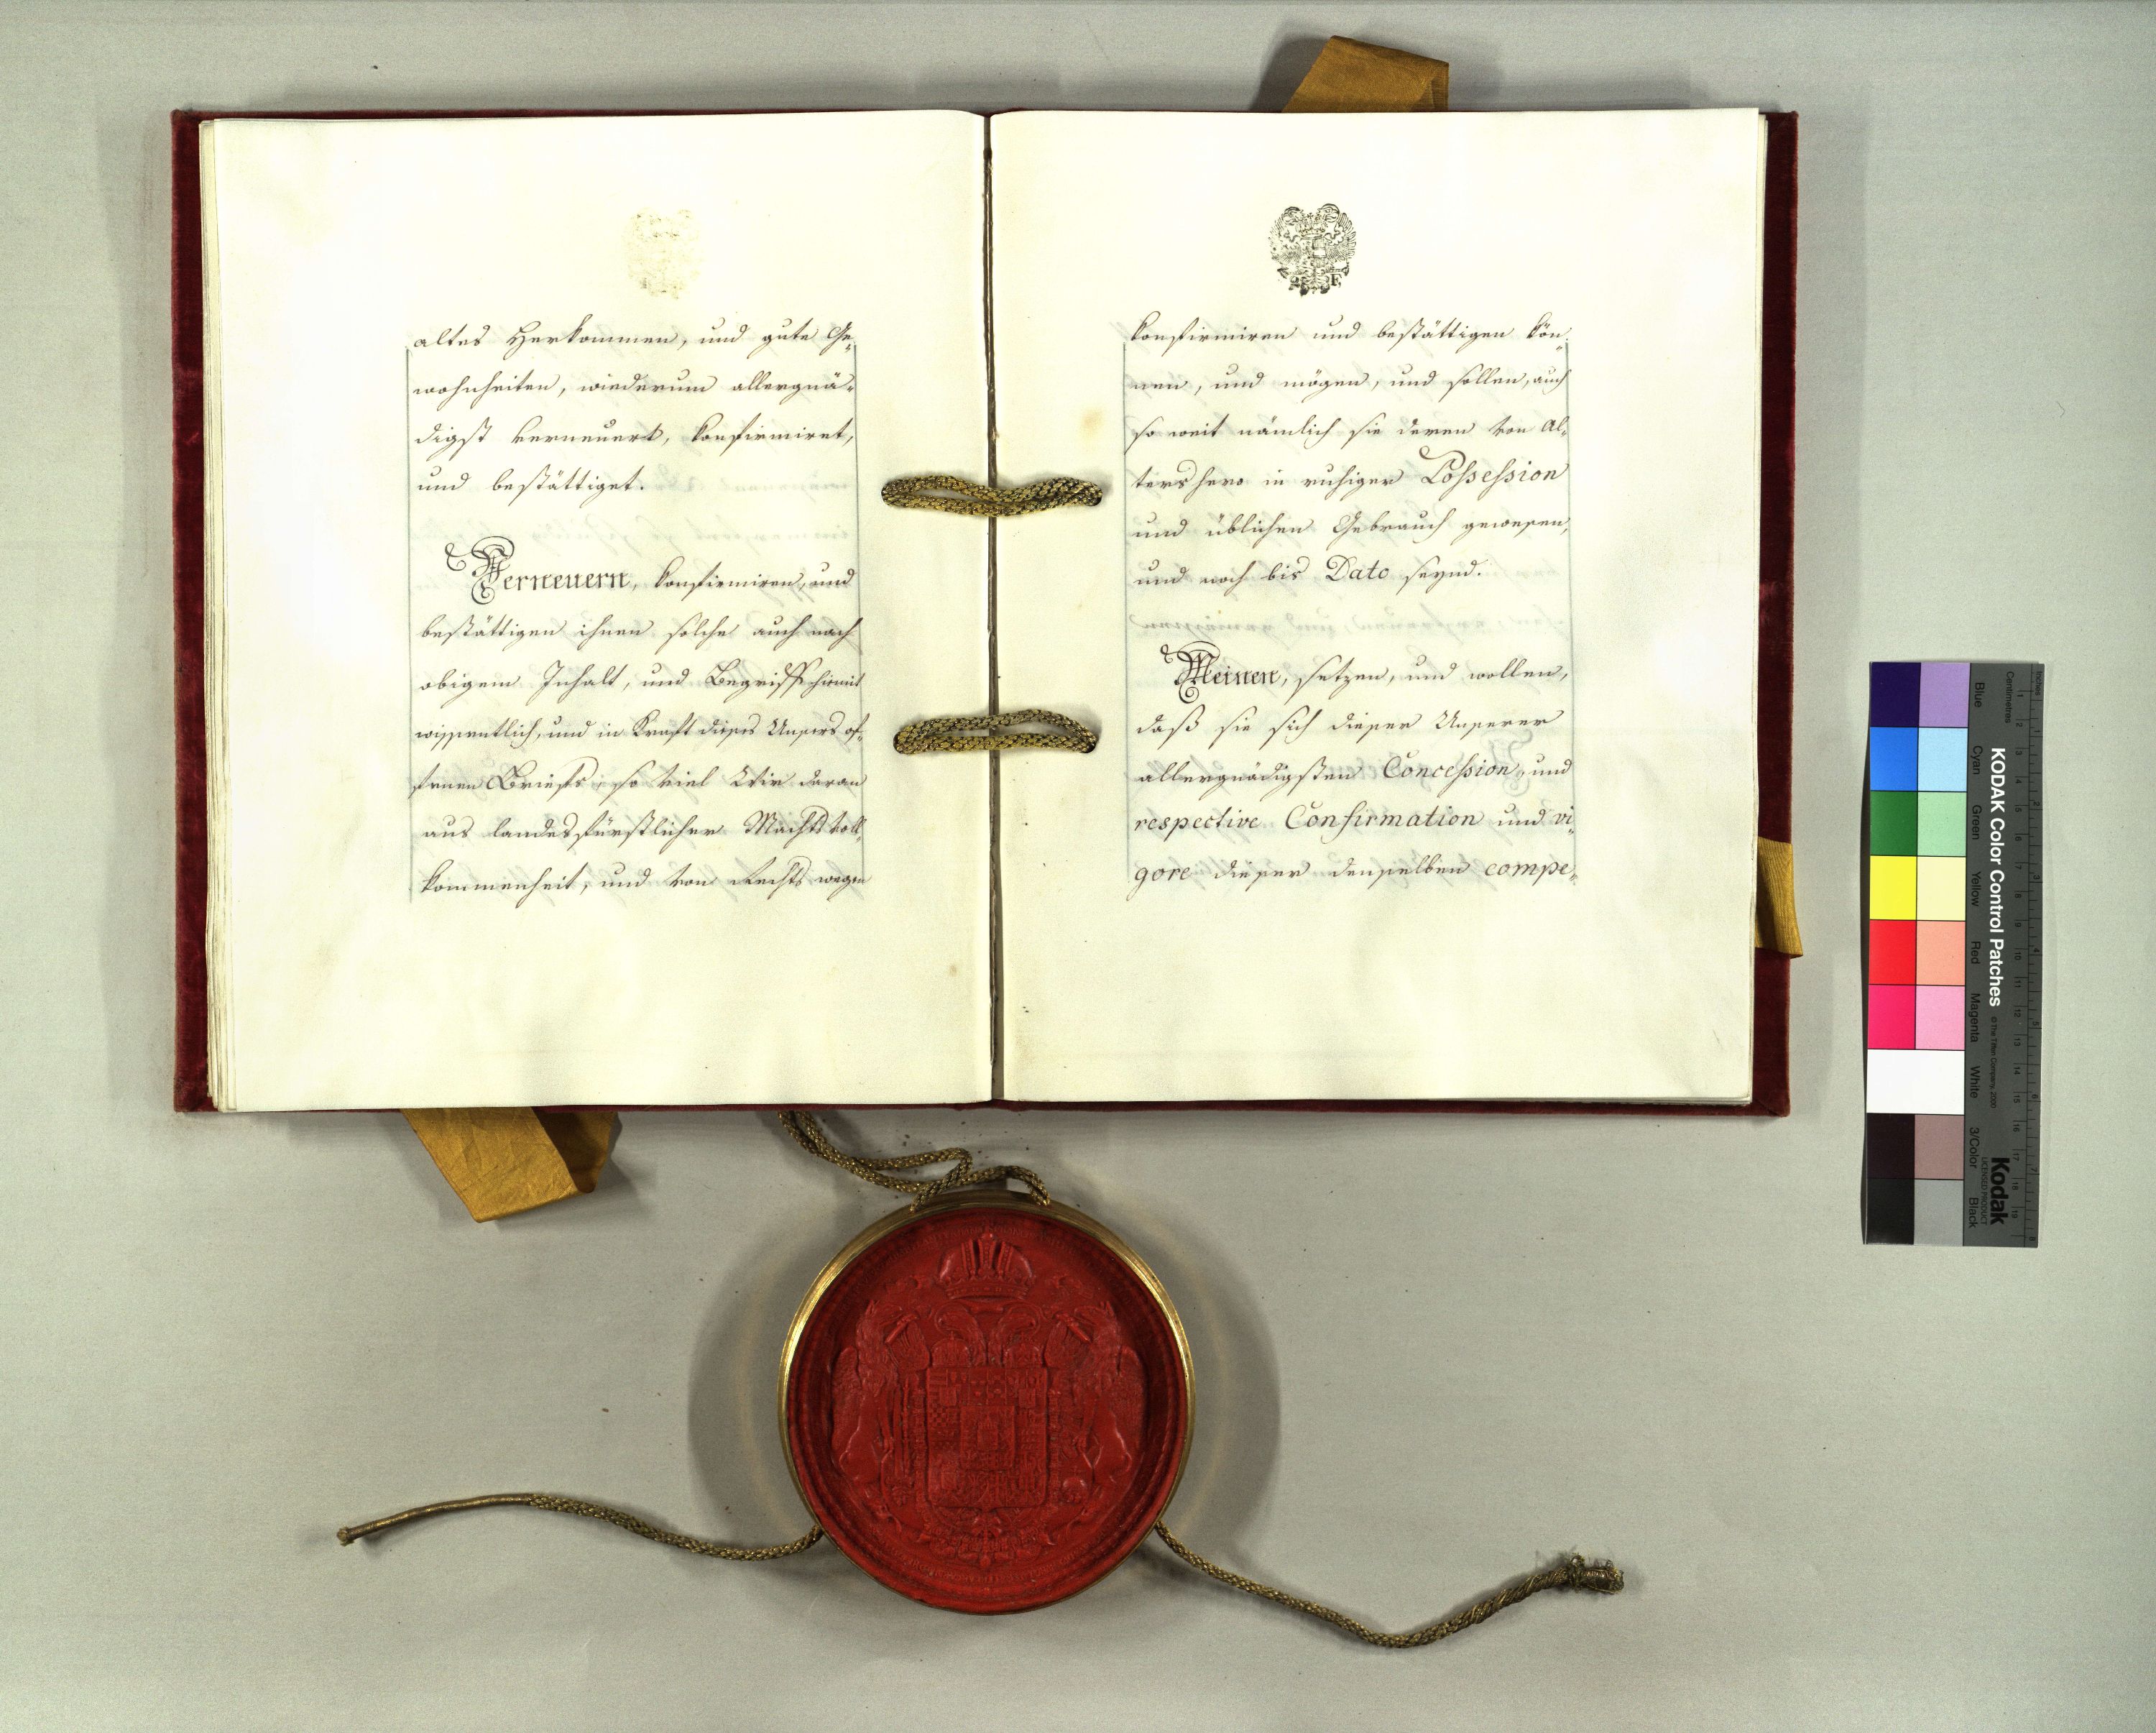 altes Herkommen, und gute Ge„
wohnheiten, wiederum allergnä„
digst verneuert, konfirmiret,
und bestättiget.
Verneuern, konfirmiren, und
bestättigen ihnen solche auch nach
obigem Inhalt, und Begriff hiemit
wissentlich, und in Kraft dieses Unsers of„
fenen Briefs, so viel Wir daran
aus landesfürstlicher Machtsvoll„
kommenheit, und von Rechts wegen
konfirmiren und bestättigen kön„
nen, und mögen, und sollen, auch
so weit nämlich sie deren von Al„
tershero in ruhiger Possession
und üblichen Gebrauch gewesen,
und noch bis Dato seynd.
Meinen, setzen, und wollen,
daß sie sich dieser Unserer
allergnädigsten Concession, und
respective Confirmation und vi„
gore dieser denselben compe„
KODAK Color Control Patches
© The Tiffen Company, 2000
Kodak
LICENSED PRODUCT
Inches
Centimetres
Blue Cyan Green Yellow Red Magenta White 3/Color Black
1 2 3 4 5 6 7 8 9 10 11 12 13 14 15 16 17 18 19